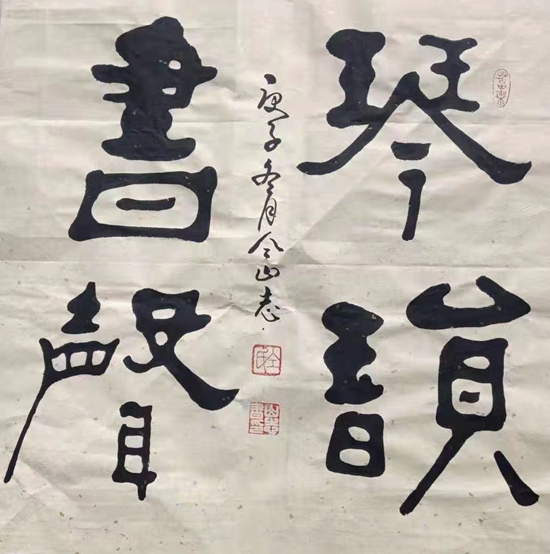 琴韻
書聲
庚子冬月仝山志